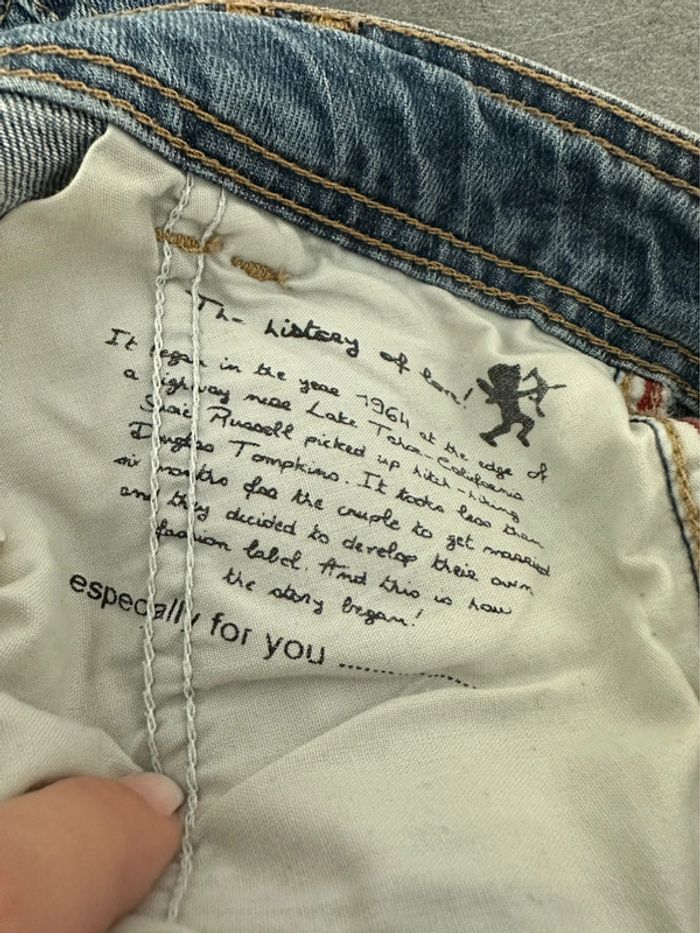 The history of love!
It began in the year 1964 at the edge of
a highway near Lake Tahoe-California
Susie Russell picked up hitch-hiking
Douglas Tompkins. It tooks less than
six months for the couple to get married
and they decided to develop their own
fashion label. And this is how
the story began!
especially for you ................